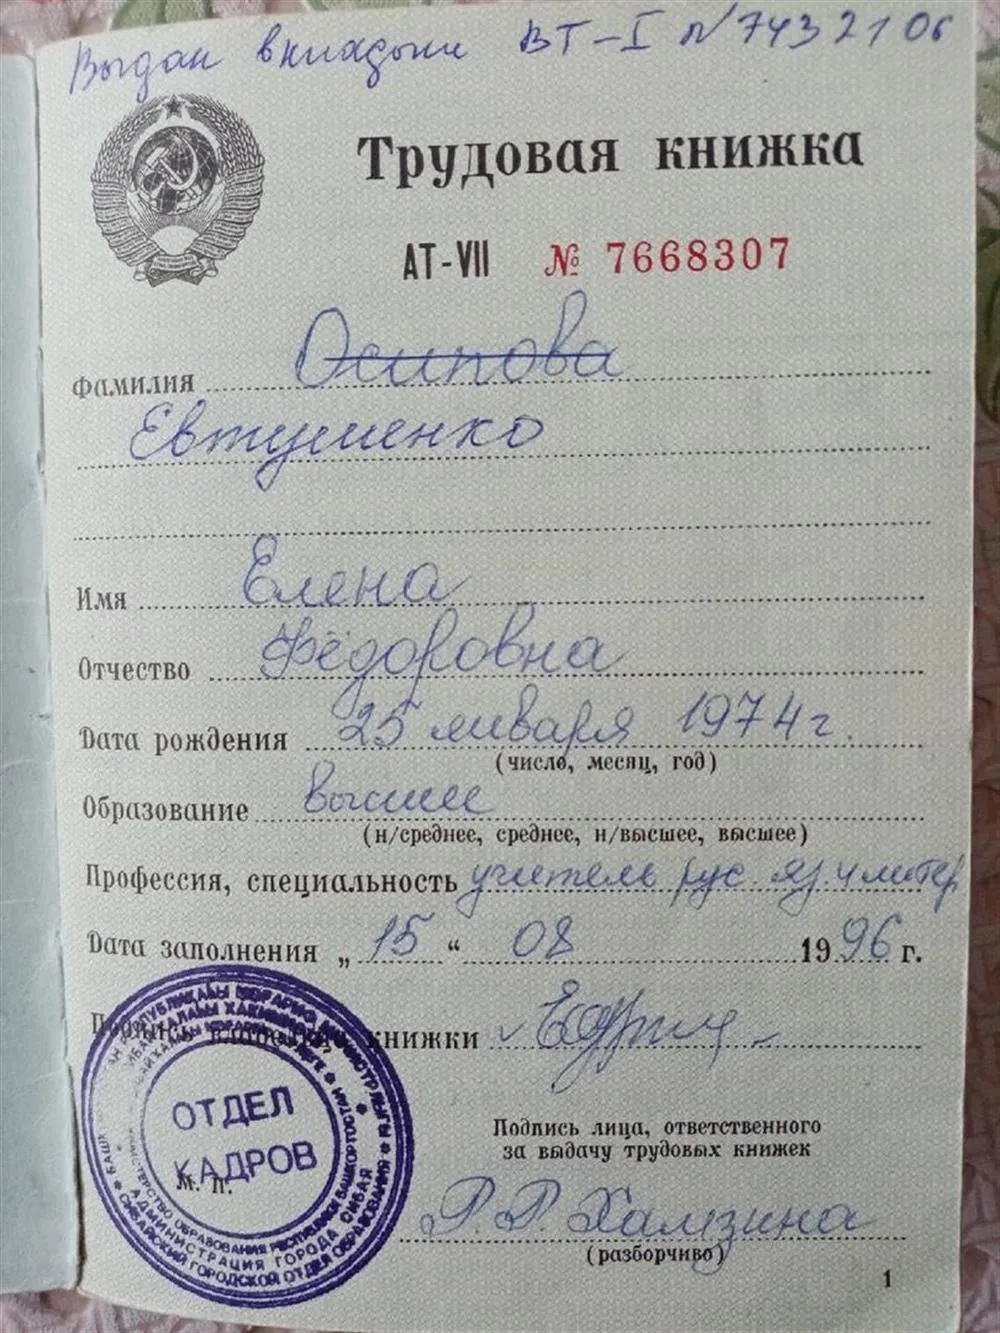 Выдан вкладыш ВТ-I №7432106
Трудовая книжка
АТ-VII № 7668307
Фамилия Осипова
Евтушенко
Имя Елена
Отчество Фёдоровна
Дата рождения 25 января 1974 г.
(число, месяц, год)
Образование высшее
(н/среднее, среднее, н/высшее, высшее)
Профессия, специальность учитель рус. яз. и литер
Дата заполнения „ 15 “ 08 1996 г.
книжки
Подпись лица, ответственного
за выдачу трудовых книжек
ОТДЕЛ
КАДРОВ
М. П.
МИНИСТЕРСТВО ОБРАЗОВАНИЯ РЕСПУБЛИКИ БАШКОРТОСТАН
АДМИНИСТРАЦИЯ ГОРОДА СИБАЯ
СИБАЙСКИЙ ГОРОДСКОЙ ОТДЕЛ ОБРАЗОВАНИЯ
Р. Р. Хамзина
(разборчиво)
1